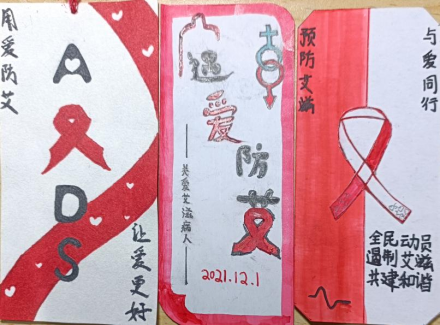 用爱防艾
A
D
S
让爱更好
遇
爱
防
艾
关爱艾滋病人
2021.12.1
预防艾滋
与爱同行
全民动员
遏制艾滋
共建和谐